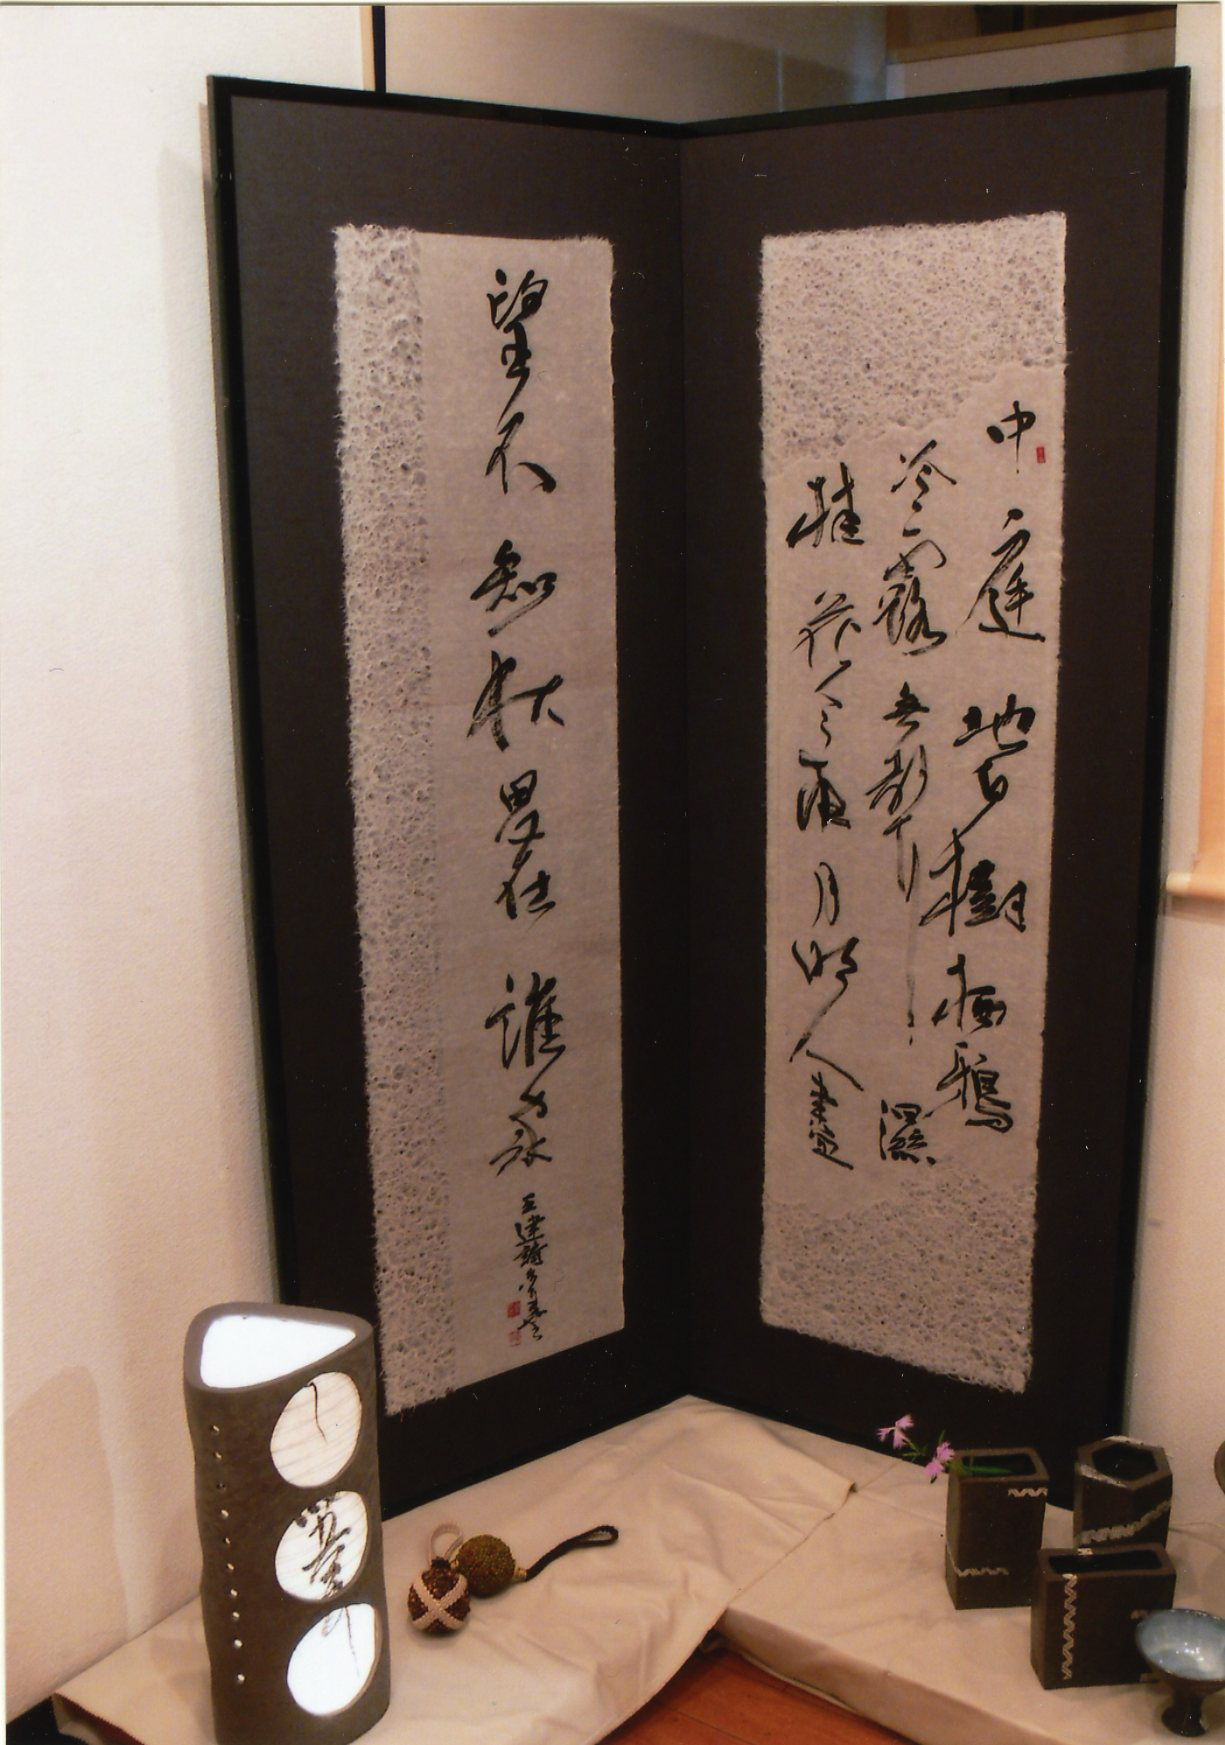 中庭地白樹栖鴉
冷露無聲濕
桂花今夜月明人盡
望不知秋思在誰家
王建詩